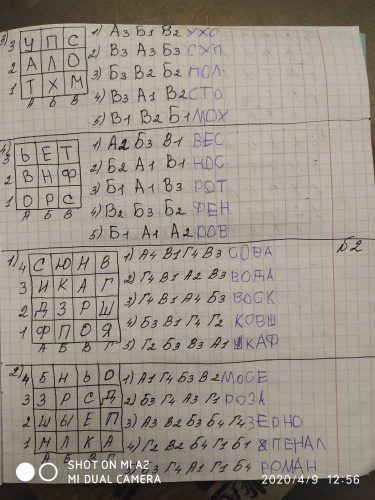 3) 3 У П С 1) А3 Б1 В2 УХО
2 А Л О 2) В3 А3 Б3 СУП
1 Т Х М 3) Б3 В2 Б2 ПОЛ
А Б В 4) В3 А1 В2 СТО
5) В1 В2 Б1 МОХ
4) 3 Ь Е Т 1) А2 Б3 В1 ВЕС
2 В Н Ф 2) Б2 А1 В1 НОС
1 О Р С 3) Б1 А1 В3 РОТ
А Б В 4) В2 Б3 Б2 ФЕН
5) Б1 А1 А2 РОВ
Б2
1) 4 С Ю Н В 1) А4 В1 Г4 В3 СОВА
3 И К А Г 2) Г4 В1 А2 В3 ВОДА
2 Д З Р Ш 3) Г4 В1 А4 Б3 ВОСК
1 Ф П О Я 4) Б3 В1 Г4 Г2 КОВШ
А Б В Г 5) Г2 Б3 В3 А1 ШКАФ
2) 4 Б Н Ь О 1) А1 Г4 Б3 В2 МОСЕ
3 З Р С Д 2) Б3 Г4 А3 Г1 РОЗА
2 Ш Ы Е П 3) А3 В2 Б3 Б4 Г4 ЗЕРНО
1 М Л К А 4) Г2 В2 Б4 Г1 Б1 ПЕНАЛ
А Б В Г Г4 А1 Г1 Б4 РОМАН
SHOT ON MI A2
MI DUAL CAMERA
2020/4/9 12:56